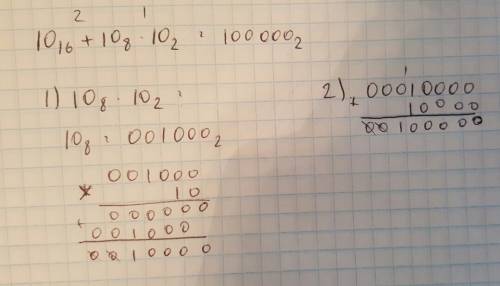 2 1
10₁₆ + 10₈ · 10₂ = 100000₂
1) 10₈ · 10₂ =
10₈ = 001000₂
001000
× 10
000000
+ 001000
0010000
2) 1
00010000
+ 10000
00100000